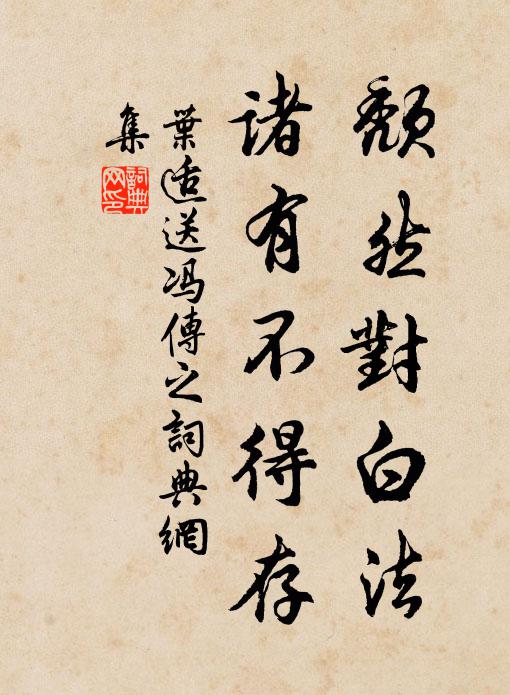 頹然對白法
諸有不得存
葉適送馮傳之詞典網
集
詞典
网印